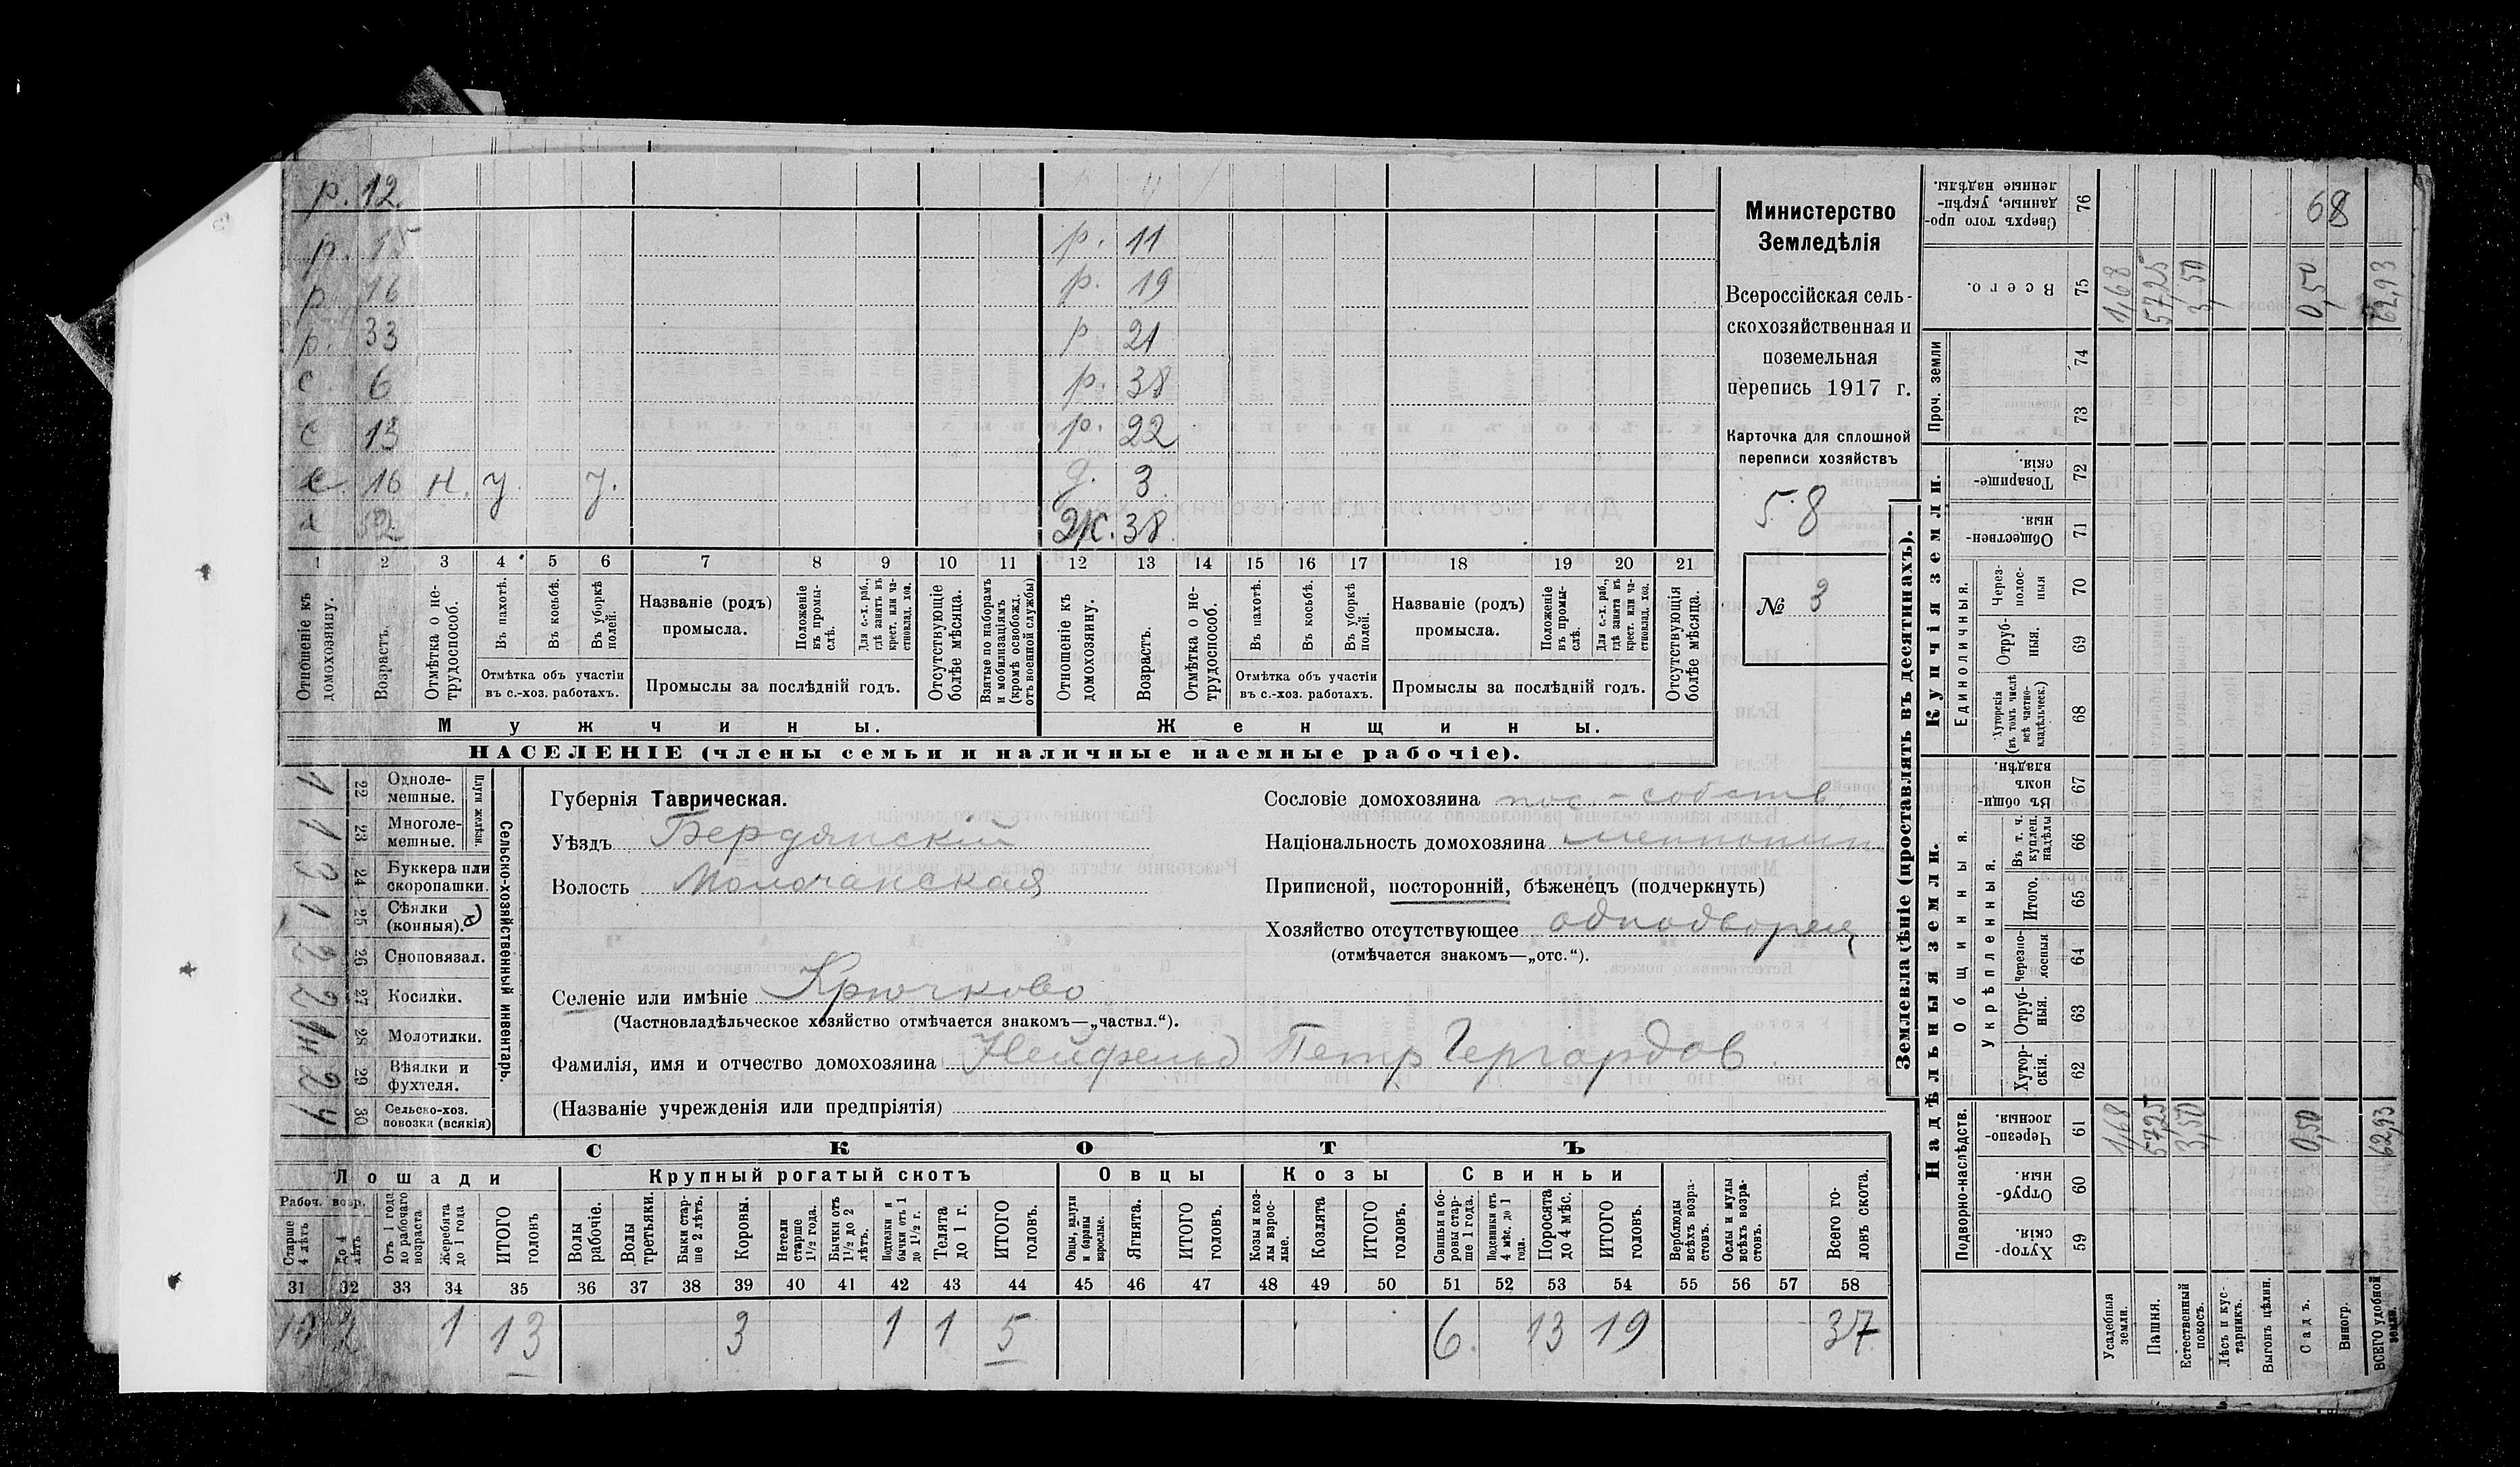 р. 12
р. 15 р. 11
р. 16 р. 19
р. 33 р 21
с 6 р. 38
с 13 р. 22
с. 16 н. у. у. д. 3
52 Ж. 38
1 2 3 4 5 6 7 8 9 10 11 12 13 14 15 16 17 18 19 20 21
Отношеніе къ домохозяину.
Возрастъ.
Отмѣтка о не-
трудоспособ.
Въ пахотѣ.
Въ косьбѣ.
Въ уборкѣ
полей.
Отмѣтка объ участіи
въ с.-хоз. работахъ.
Названіе (родъ)
промысла.
Положеніе
въ промы-
слѣ.
Для с.-х. раб.,
гдѣ занятъ въ
крест. или ча-
стновлад. хоз.
Промыслы за послѣдній годъ.
Отсутствующіе
болѣе мѣсяца.
Взятые по наборамъ
и мобилизаціямъ
(кромѣ освобожд.
отъ военной службы)
Отношеніе къ
домохозяину.
Возрастъ.
Отмѣтка о не-
трудоспособ.
Въ пахотѣ.
Въ косьбѣ.
Въ уборкѣ
полей.
Отмѣтка объ участіи
въ с.-хоз. работахъ.
Названіе (родъ)
промысла.
Положеніе
въ промы-
слѣ.
Для с.-х. раб.,
гдѣ занята въ
крест. или ча-
стновлад. хоз.
Промыслы за послѣдній годъ.
Отсутствующія
болѣе мѣсяца.
Мужчины.
Женщины.
НАСЕЛЕНІЕ (члены семьи и наличные наемные рабочіе).
Министерство
Земледѣлія
Всероссійская сель-
скохозяйственная и
поземельная
перепись 1917 г.
Карточка для сплошной
переписи хозяйствъ
58
№ 3
Сельско-хозяйственный инвентарь.
Плуги желѣзн.
1 22 Однолемешные.
1 23 Многолемешные.
3 24 Буккера или скоропашки.
1 25 Сѣялки (конныя).
2 26 Сноповязал.
2 27 Косилки.
28 Молотилки.
2 29 Вѣялки и фухтеля.
4 30 Сельско-хоз. повозки (всякія)
Губернія Таврическая.
Уѣздъ Бердянскій
Волость Молочанская
Сословіе домохозяина пос.-собств.
Національность домохозяина меннонит
Приписной, посторонній, бѣженецъ (подчеркнуть)
Хозяйство отсутствующее однодворец
(отмѣчается знакомъ—„отс.“).
Селеніе или имѣніе Крючково
(Частновладѣльческое хозяйство отмѣчается знакомъ—„частвл.“).
Фамилія, имя и отчество домохозяина Нейфельд Петр Гергардов.
(Названіе учрежденія или предпріятія)
СКОТЪ
Лошади Крупный рогатый скотъ Овцы Козы Свиньи
Рабоч. возр.
Старше
4 лѣтъ
До 4
лѣтъ
Отъ 1 года
до рабочаго
возраста
Жеребята
до 1 года
ИТОГО
головъ
Волы
рабочіе.
Волы
третьяки.
Быки стар-
ше 2 лѣтъ.
Коровы.
Нетели
старше
1½ года.
Бычки отъ
1½ до 2
лѣтъ.
Подтелки и
бычки отъ 1
до 1½ г.
Телята
до 1 г.
ИТОГО
головъ.
Овцы, валухи
и бараны
взрослые.
Ягнята.
ИТОГО
головъ.
Козы и коз-
лы взрос-
лые.
Козлята
ИТОГО
головъ.
Свиньи и бо-
ровы стар-
ше 1 года.
Подсвинки отъ
4 мѣс. до 1
года.
Поросята
до 4 мѣс.
ИТОГО
головъ.
Верблюды
всѣхъ возра-
стовъ.
Ослы и мулы
всѣхъ возра-
стовъ.
Всего го-
ловъ скота.
31 32 33 34 35 36 37 38 39 40 41 42 43 44 45 46 47 48 49 50 51 52 53 54 55 56 57 58
10 2 1 13 3 1 1 5 6 13 19 37
Землевладѣніе (проставлять въ десятинахъ).
Надѣльныя земли.
Купчія земли.
Проч. земли
Подворно-наслѣдств.
Общинныя.
Укрѣпленныя.
Единоличныя.
Сверхъ того про-
данные, укрѣп-
ленные надѣлы.
76
68
Всего.
75 1,68 57,25 3,50 0,50 62,93
74
73
Товарище-
скія.
72
Обществен-
ныя.
71
Через-
полос-
ныя
70
Отруб-
ныя.
69
Хуторскія
(въ томъ числѣ
всѣ частно-
владѣльческ.)
68
Въ общин-
номъ
владѣн.
67
Въ т. ч.
куплен.
надѣлы
66
Итого.
65
Черезпо-
лосныя
64
Отруб-
ныя.
63
Хутор-
скія.
62
Черезпо-
лосныя.
61 1,68 57,25 3,50 0,50 62,93
Отруб-
ныя.
60
Хутор-
скія.
59
Усадебныя
земли.
Пашня.
Естественный
покосъ.
Лѣсъ и кус-
тарникъ.
Выгонъ цѣлин.
Садъ.
Виногр.
ВСЕГО удобной
земли.